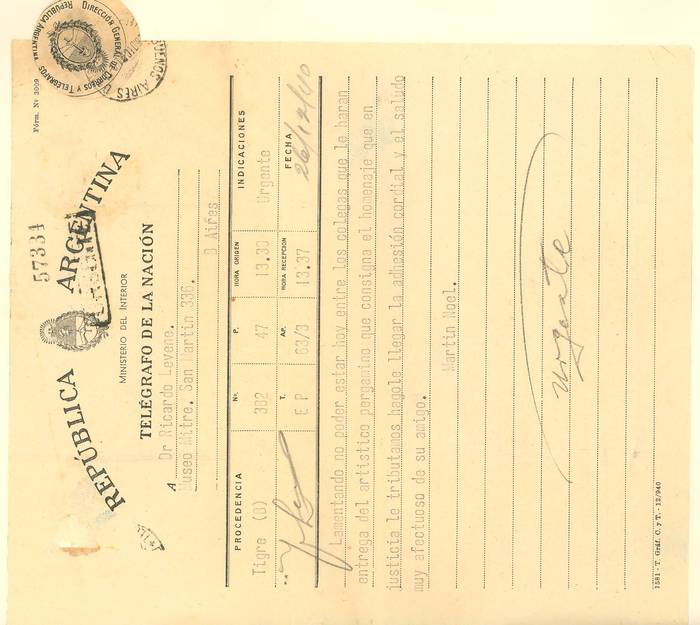 REPÚBLICA ARGENTINA
DIRECCIÓN GENERAL DE CORREOS Y TELÉGRAFOS
REPÚBLICA ARGENTINA
BUENOS AIRES
Fórm. Nº 3009
57334
MINISTERIO DEL INTERIOR
TELÉGRAFO DE LA NACIÓN
A Dr Ricardo Levene.
Museo Mitre. San Martin 336.
B Aires
PROCEDENCIA Nº. P. HORA ORIGEN INDICACIONES
Tigre (B) 302 47 13.30 Urgente
T. AP. HORA RECEPCION FECHA
E P 63/3 13.37 26/12/40
Lamentando no poder estar hoy entre los colegas que le haran
entrega del artistico pergamino que consigna el homenaje que en
justicia le tributamos hagole llegar la adhesión cordial y el saludo
muy afectuoso de su amigo.
Martin Noel.
urgente
1581 - T. Gráf. C. y T. - 12/940